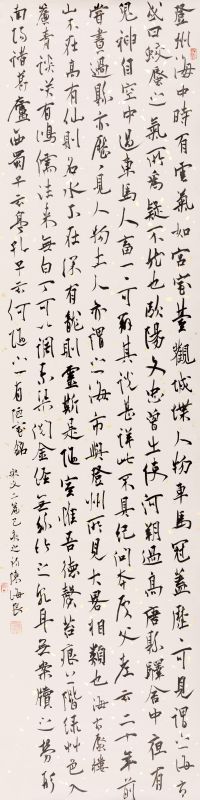 登州海中時有雲氣如宮室臺觀城堞人物車馬冠蓋歷々可見謂之海市
或曰蛟蜃之氣所為疑不然也歐陽文忠曾出使河朔過高唐縣驛舍中夜有
鬼神自空中過車馬人畜一一可辨其說甚詳此不具紀問本處父老云二十年前
嘗晝過縣亦歷々見人物土人亦謂之海市與登州所見大略相類也海市蜃樓
山不在高有仙則名水不在深有龍則靈斯是陋室惟吾德馨苔痕上階綠艸色入
簾青談笑有鴻儒往來無白丁可以調素琴閱金經無絲竹之亂耳無案牘之勞形
南陽諸葛廬西蜀子云亭孔子云何陋之有陋室銘 文二篇